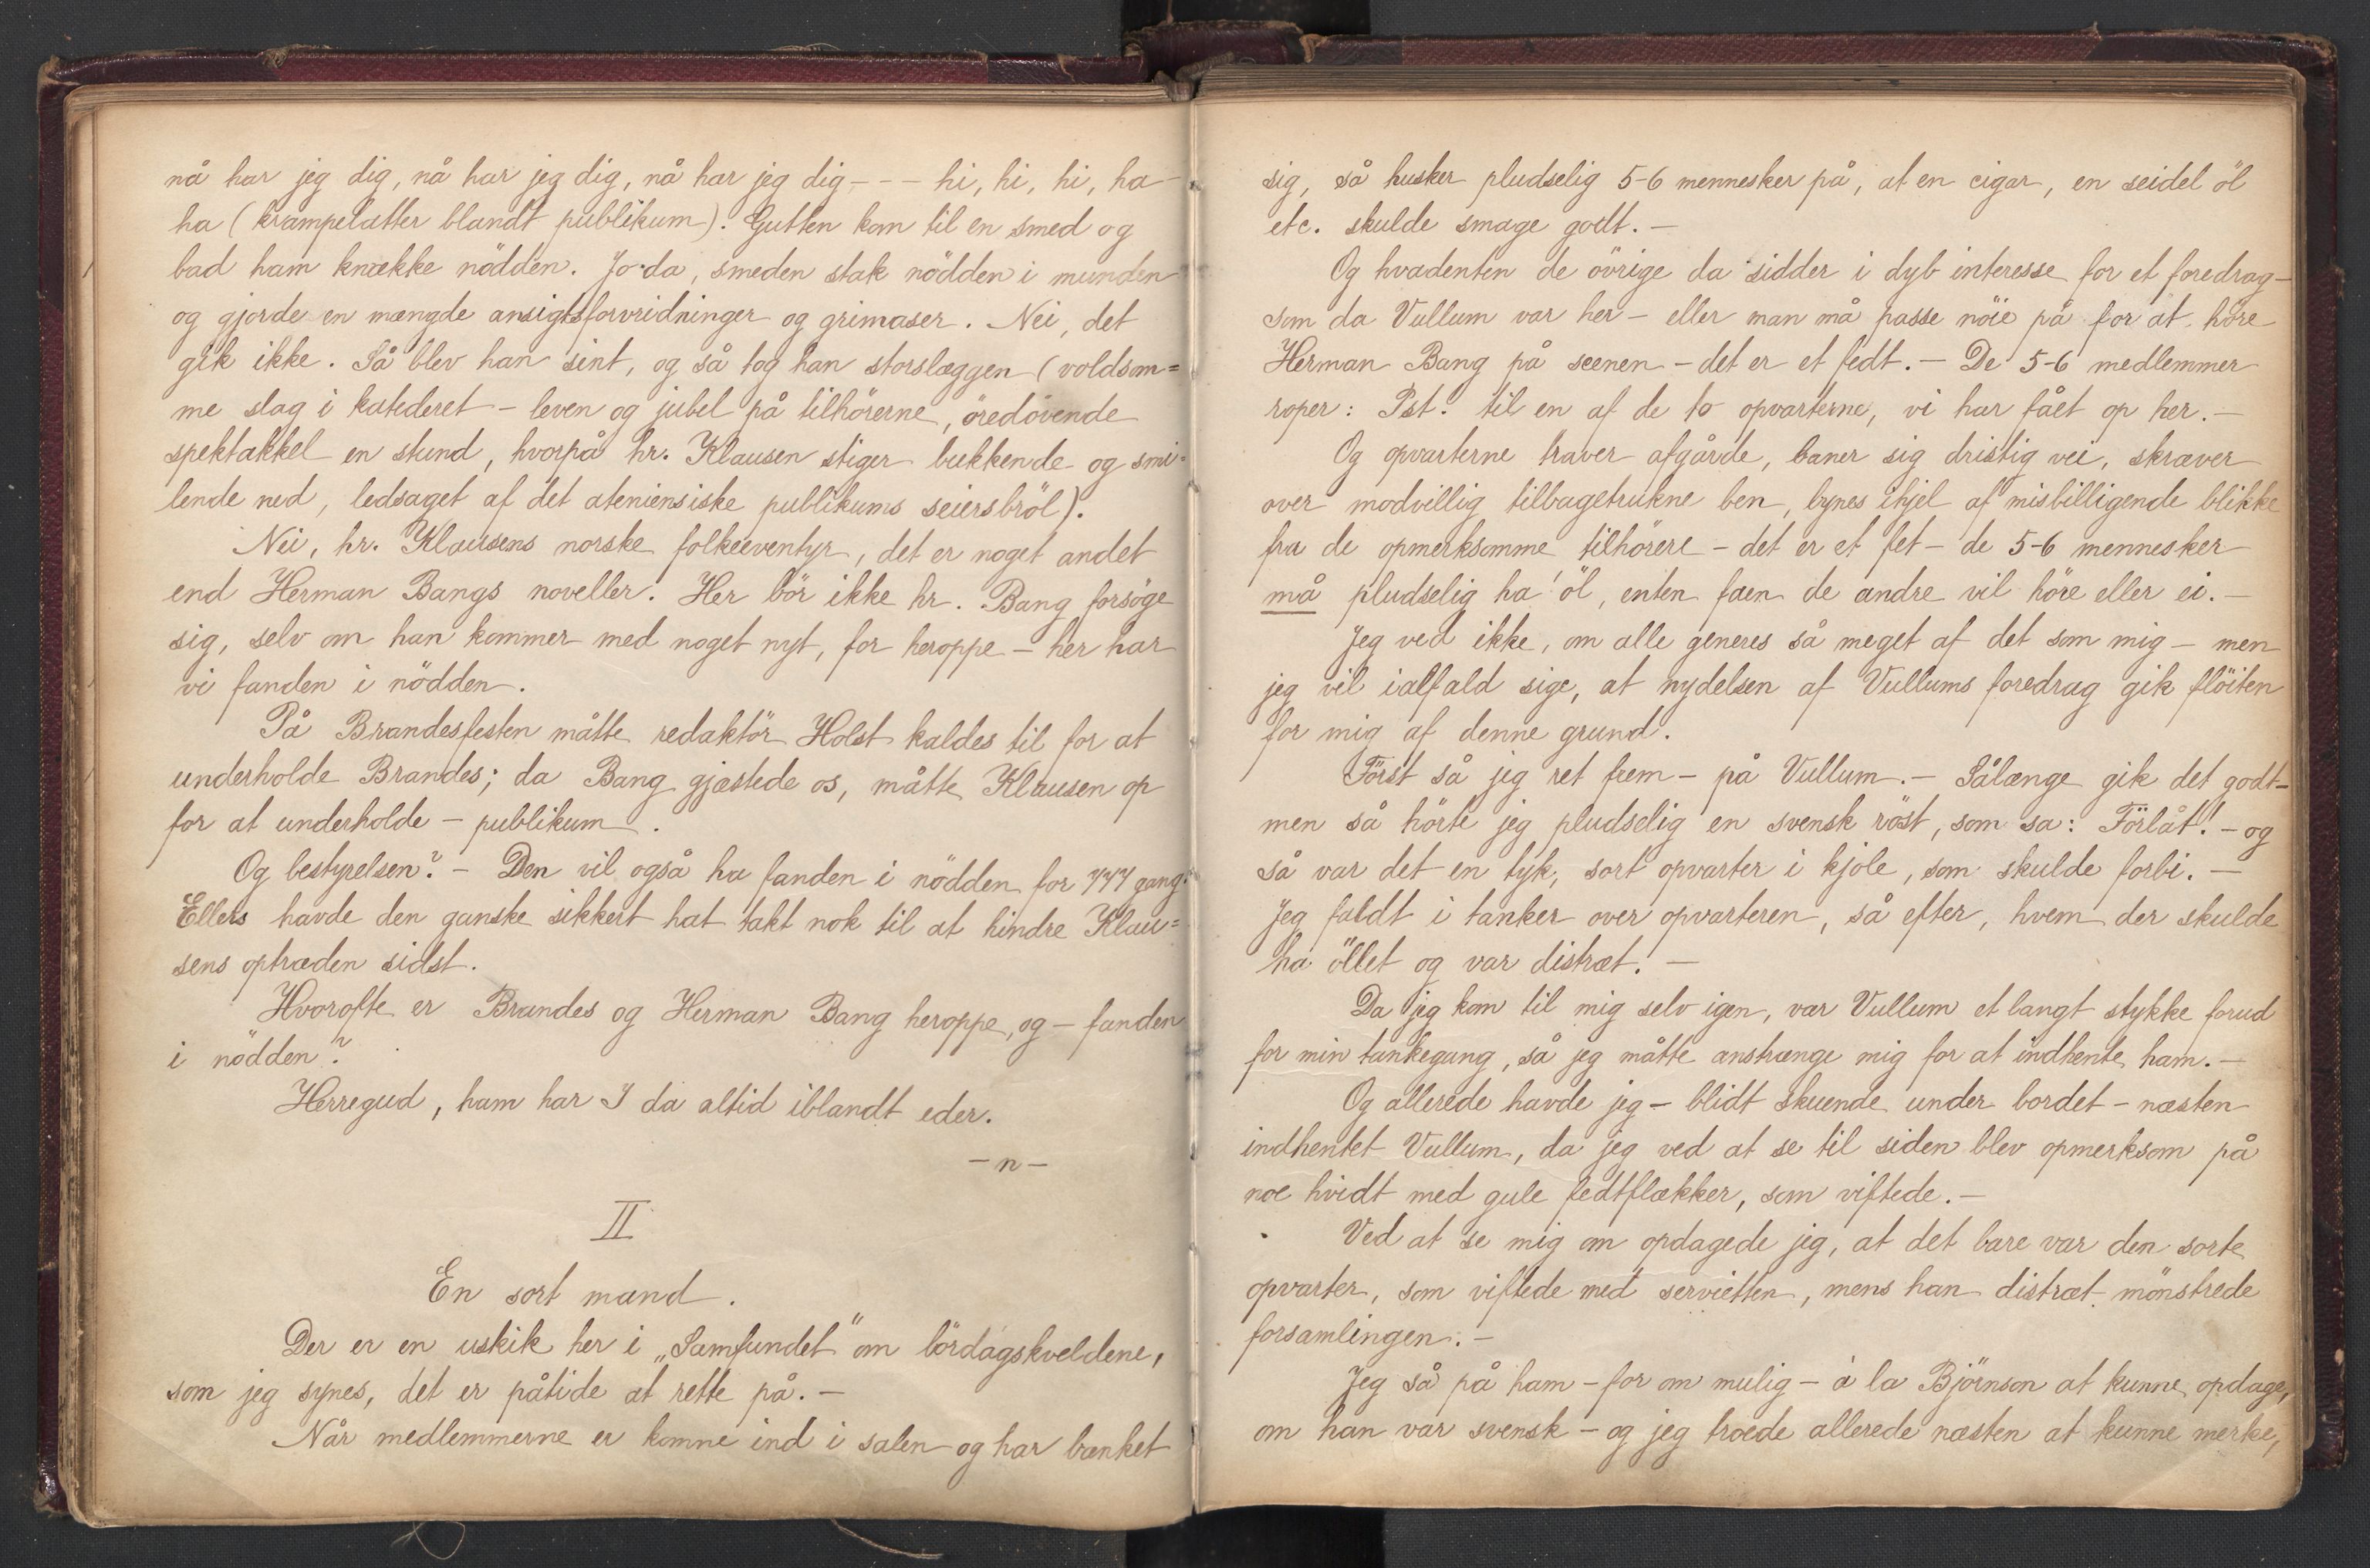 nå har jeg dig, nå har jeg dig, nå har jeg dig - - - hi, hi, hi, ha -
ha (krampelatter blandt publikum). Gutten kom til en smed og
bad ham knække nödden. Jo da, smeden stak nödden i munden
og gjorde en mængde ansigtsforvridninger og grimaser. Nei, det
gik ikke. Så blev han sint, og så tog han storslæggen (voldsom=
me slag i katederet - leven og jubel på tilhörerne, öredövende
spektakkel en stund, hvorpå hr. Klausen stiger bukkende og smi-
lende ned, ledsaget af det ateniensiske publikums seiersbröl).
Nei, hr. Klausens norske folkeeventyr, det er noget andet
end Herman Bangs noveller. Her bör ikke hr. Bang forsöge
sig, selv om han kommer med noget nyt, for heroppe - her har
vi fanden i nödden.
På Brandesfesten måtte redaktör Holst kaldes til for at
underholde Brandes; da Bang gjæstede os, måtte Klausen op
for at underholde - publikum.
Og bestyrelsen? - Den vil også ha fanden i nödden for 777 gang.
Ellers havde den ganske sikkert hat takt nok til at hindre Klau=
sens optræden sidst.
Hvorofte er Brandes og Herman Bang heroppe, og - fanden
i nödden?
Herregud, ham har I da altid iblandt eder.
- n -
II
En sort mand.
Der er en uskik her i „Samfundet" om lördagskveldene,
som jeg synes, det er påtide at rette på. -
Når medlemmerne er komne ind i salen og har bænket
sig, så husker pludselig 5-6 mennesker på, at en cigar, en seidel öl
etc. skulde smage godt. -
Og hvadenten de övrige da sidder i dyb interesse for et foredrag -
som da Vullum var her - eller man må passe nöie på for at höre
Herman Bang på scenen - det er et fedt. - De 5-6 medlemmer
roper: Pst! til en af de to opvarterne, vi har fået op her. -
Og opvarterne traver afgårde, baner sig dristig vei, skræver
over modvillig tilbagetrukne ben, lynes ihjel af misbilligende blikke
fra de opmerksomme tilhörere - det er et fet - de 5-6 mennesker
må pludselig ha öl, enten faen de andre vil höre eller ei. -
Jeg ved ikke, om alle generes så meget af det som mig - men
jeg vil ialfald sige, at nydelsen af Vullums foredrag gik flöiten
for mig af denne grund.
Först så jeg ret frem - på Vullum. - Sålænge gik det godt -
men så hörte jeg pludselig en svensk röst, som sa: Förlåt! - og
så var det en tyk, sort opvarter i kjole, som skulde forbi. -
Jeg faldt i tanker over opvarteren, så efter, hvem der skulde
ha öllet og var distræt. -
Da jeg kom til mig selv igen, var Vullum et langt stykke forud
for min tankegang, så jeg måtte anstrænge mig for at indhente ham. -
Og allerede havde jeg - blidt skuende under bordet - næsten
indhentet Vullum, da jeg ved at se til siden blev opmerksom på
noe hvidt med gule fedtflækker, som viftede. -
Ved at se mig om opdagede jeg, at det bare var den sorte
opvarter, som viftede med servietten, mens han distræt mönstrede
forsamlingen. -
Jeg så på ham - for om mulig - à la Björnson at kunne opdage,
om han var svensk - og jeg troede allerede næsten at kunne merke,